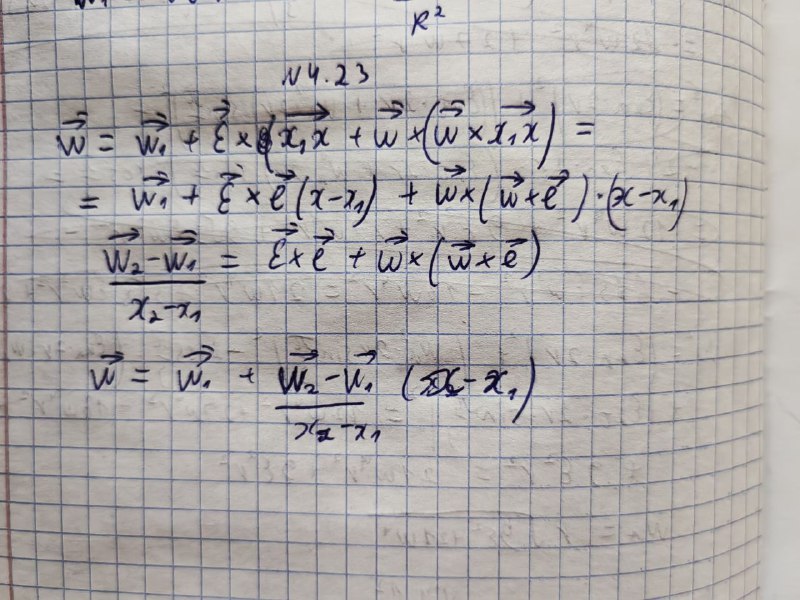 R²
N4.23
w⃗ = w⃗₁ + ε⃗ × (x₁x⃗ + ω⃗ × (ω⃗ × x₁x⃗) =
= w⃗₁ + ε⃗ × e⃗ (x-x₁) + ω⃗ × (ω⃗ × e⃗) · (x-x₁)
(w⃗₂ - w⃗₁)/(x₂-x₁) = ε⃗ × e⃗ + ω⃗ × (ω⃗ × e⃗)
w⃗ = w⃗₁ + (w⃗₂ - w⃗₁)/(x₂-x₁) (x - x₁)